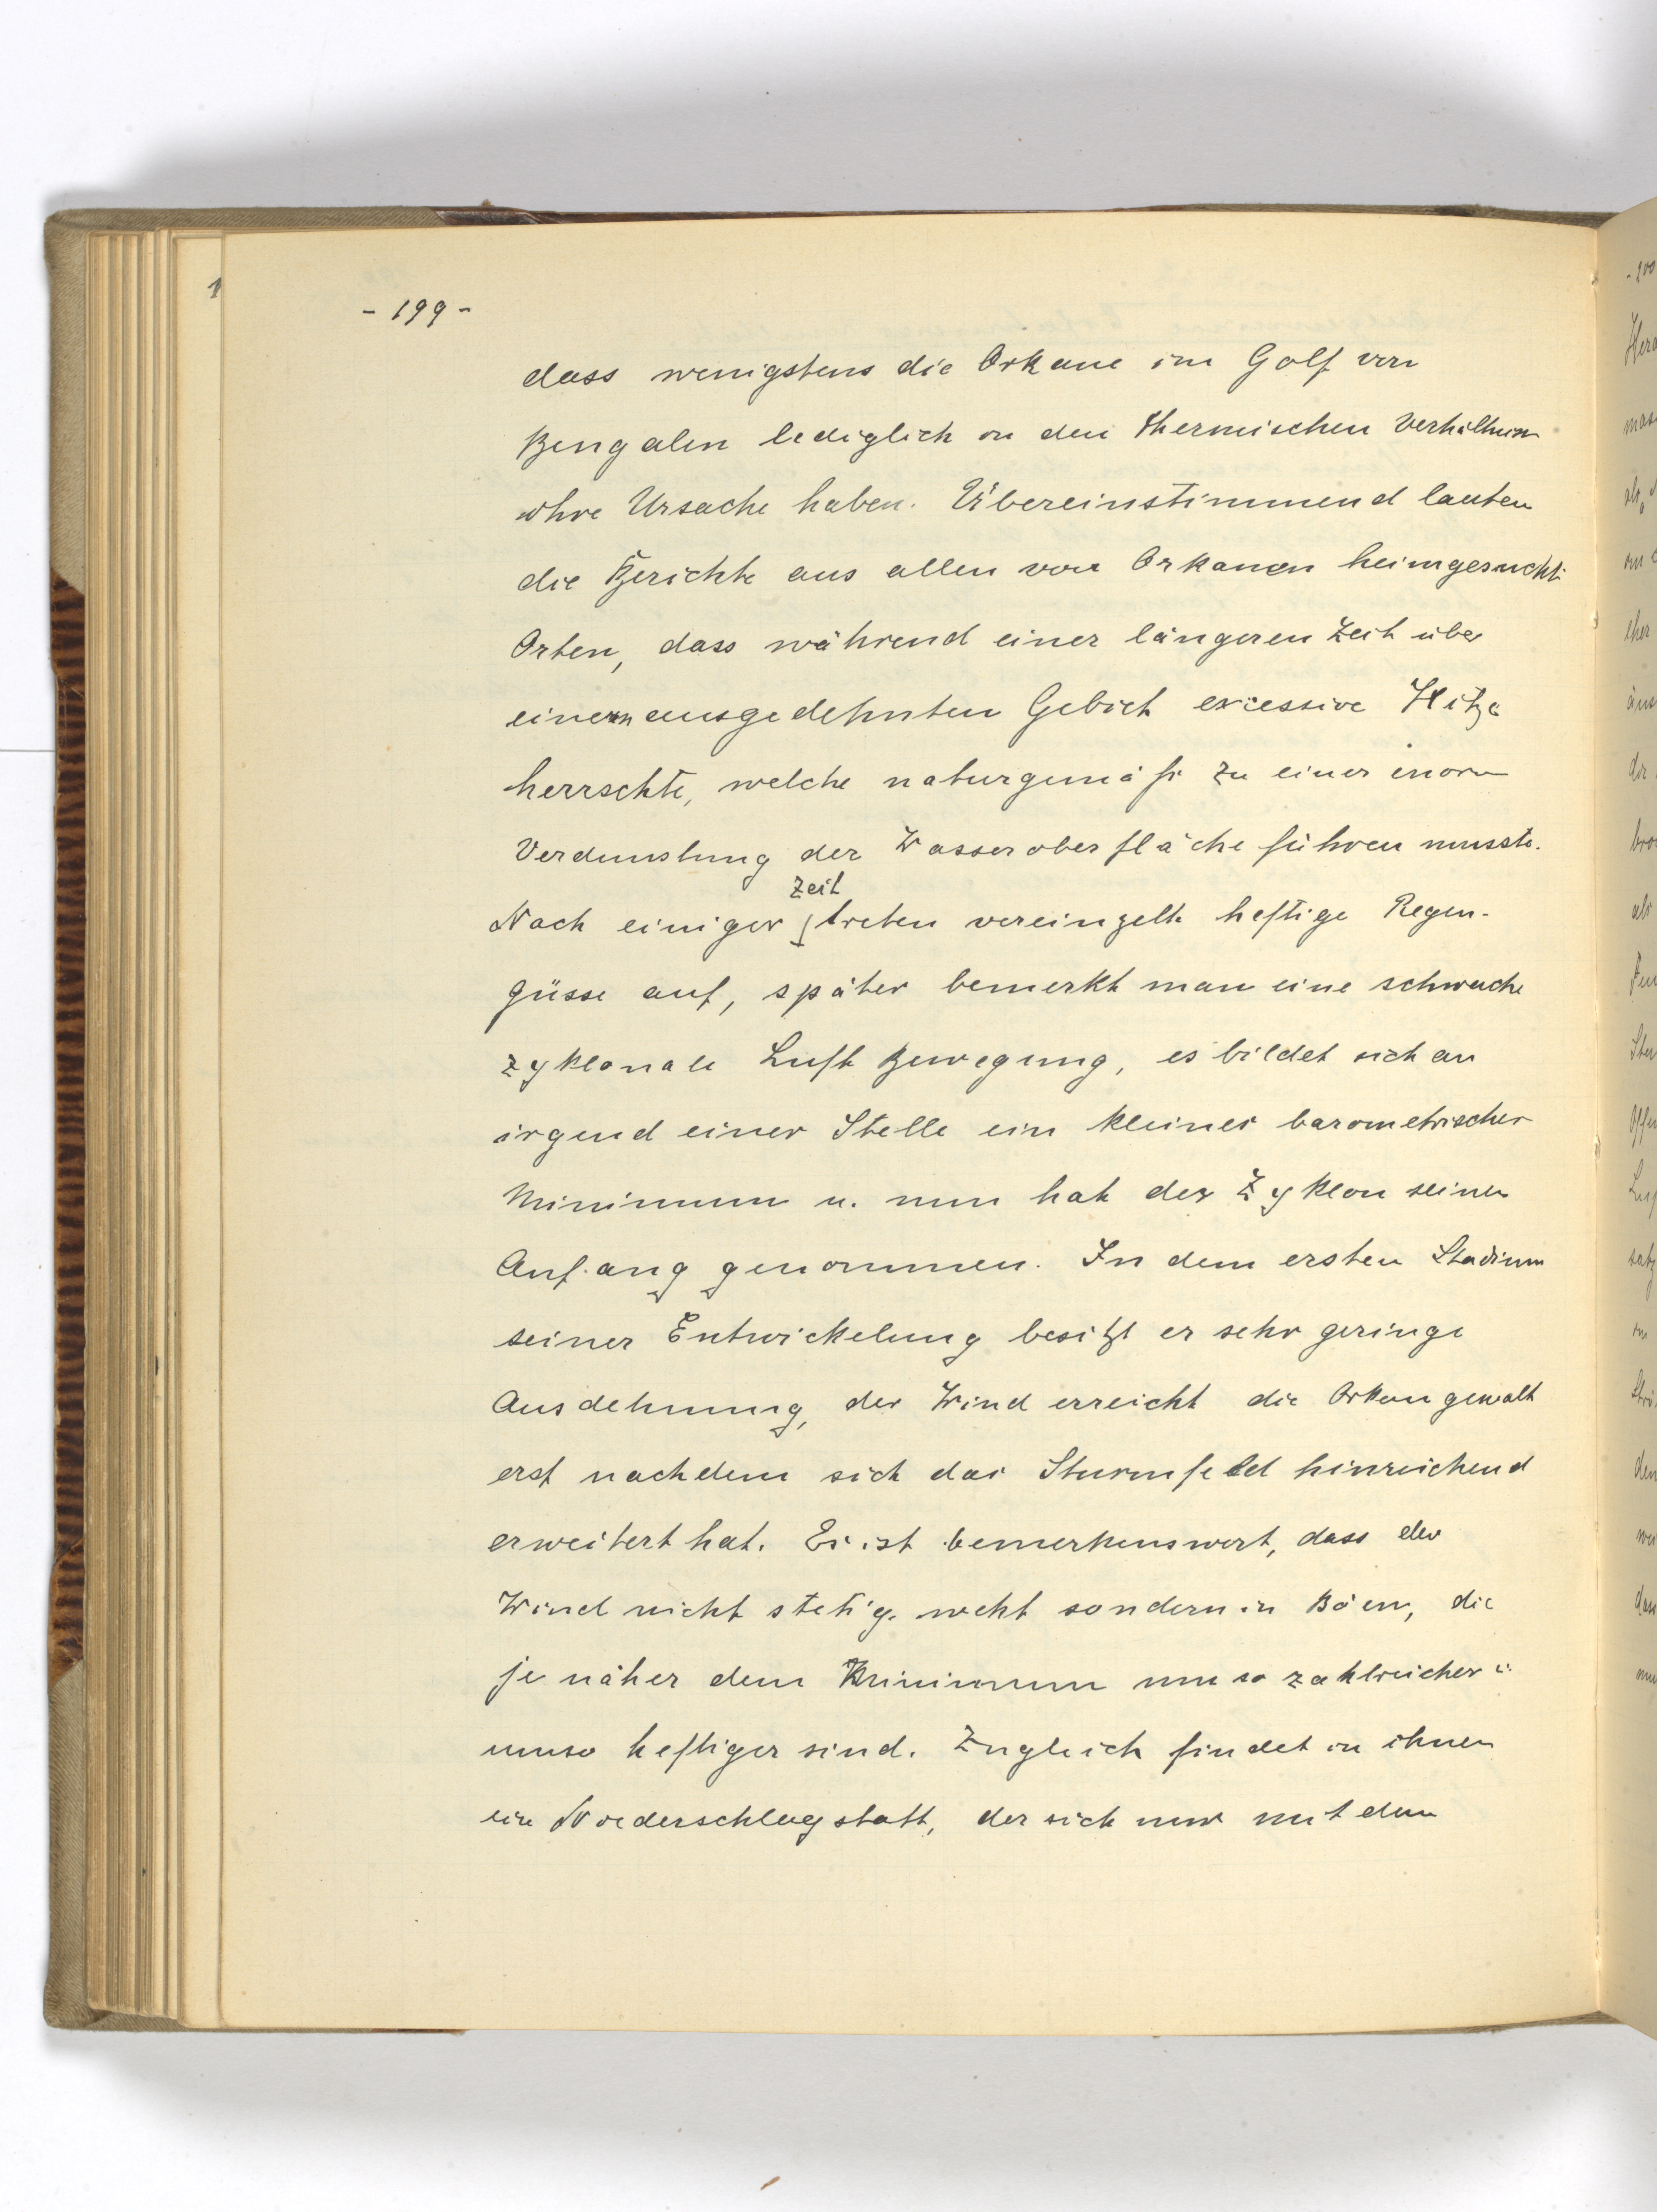 - 199 -
dass wenigstens die Orkane im Golf von
Bengalen lediglich in den thermischen Verhältnissen
ihre Ursache haben. Übereinstimmend lauten
die Berichte aus allen von Orkanen heimgesucht.
Orten, dass während einer längeren Zeit über
einem ausgedehnten Gebiet excessive Hitze
herrschte, welche naturgemäß zu einer enorm
Verdunstung der Wasseroberfläche führen musste.
Nach einiger Zeit treten vereinzelte heftige Regen-
güsse auf, später bemerkt man eine schwache
zyklonale Luft Bewegung, es bildet sich an
irgend einer Stelle ein kleines barometrisches
Minimum u. nun hat der Zyklon seinen
Anfang genommen. In dem ersten Stadium
seiner Entwickelung besitzt er sehr geringe
Ausdehnung, der Wind erreicht die Orkangewalt
erst nachdem sich das Sturmfeld hinreichend
erweitert hat. Es ist bemerkenswert, dass der
Wind nicht stetig weht sondern in Böen, die
je näher dem Minimum um so zahlreicher u.
umso heftiger sind. Zugleich findet in ihnen
ein Niederschlag statt, der sich nur mit dem